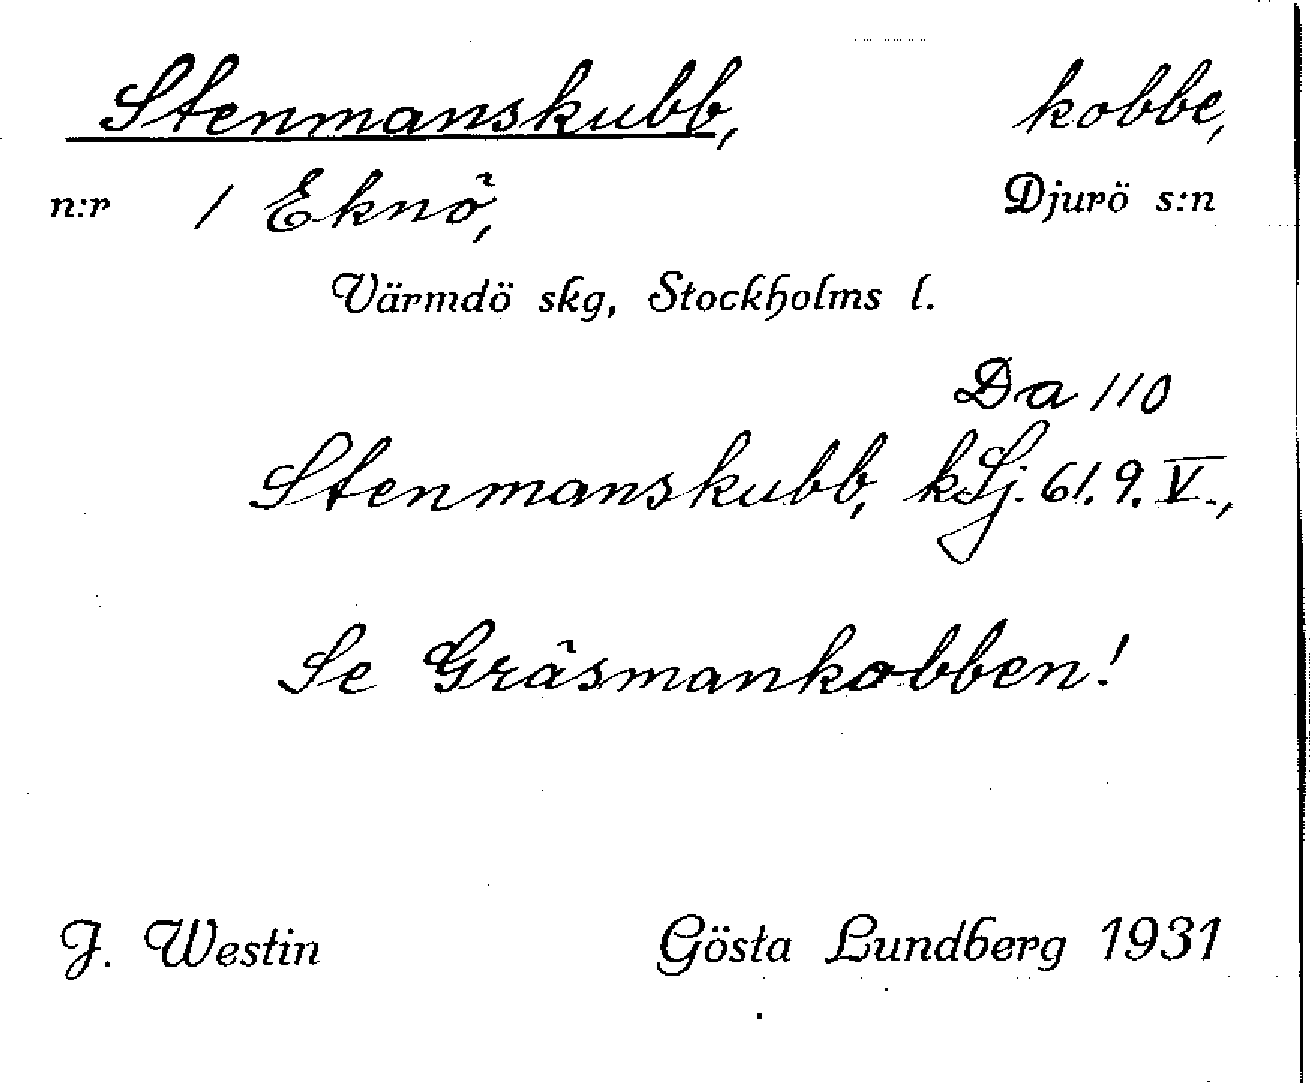 Stenmanskubb, kobbe,
n:r 1 Eknö, Djurö s:n
Värmdö skg, Stockholms l.
Da 110
Stenmanskubb, kSj. 61. 9. V.,
Se Gräsmankobben!
J. Westin Gösta Lundberg 1931